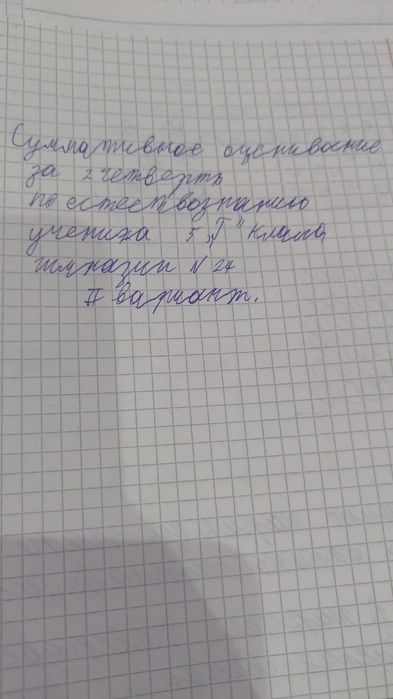 Суммативное оценивание
за 2 четверть
по естествознанию
ученика 5 "Г" класса
гимназии №24
II вариант.